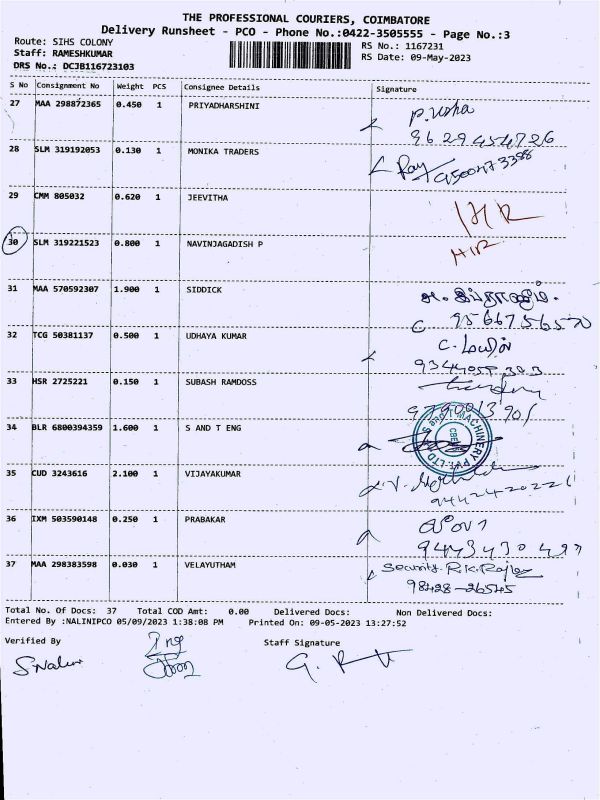 THE PROFESSIONAL COURIERS, COIMBATORE
Delivery Runsheet - PCO - Phone No.:0422-3505555 - Page No.:3
Route: SIHS COLONY
RS No.: 1167231
Staff: RAMESHKUMAR
RS Date: 09-May-2023
DRS No.: DCJB116723103
S No Consignment No Weight PCS Consignee Details Signature
27 MAA 298872365 0.450 1 PRIYADHARSHINI P. Usha
9629454726
28 SLM 319192053 0.130 1 MONIKA TRADERS
29 CMM 805032 0.620 1 JEEVITHA
30 SLM 319221523 0.800 1 NAVINJAGADISH P
31 MAA 570592307 1.900 1 SIDDICK
9566756570
32 TCG 50381137 0.500 1 UDHAYA KUMAR
33 HSR 2725221 0.150 1 SUBASH RAMDOSS
34 BLR 6800394359 1.600 1 S AND T ENG
MACHINERY PVT. LTD.
35 CUD 3243616 2.100 1 VIJAYAKUMAR
36 IXM 503590148 0.250 1 PRABAKAR
37 MAA 298383598 0.030 1 VELAYUTHAM Security. R.K.
98428-26545
Total No. Of Docs: 37 Total COD Amt: 0.00 Delivered Docs: Non Delivered Docs:
Entered By :NALINIPCO 05/09/2023 1:38:08 PM Printed On: 09-05-2023 13:27:52
Verified By Staff Signature